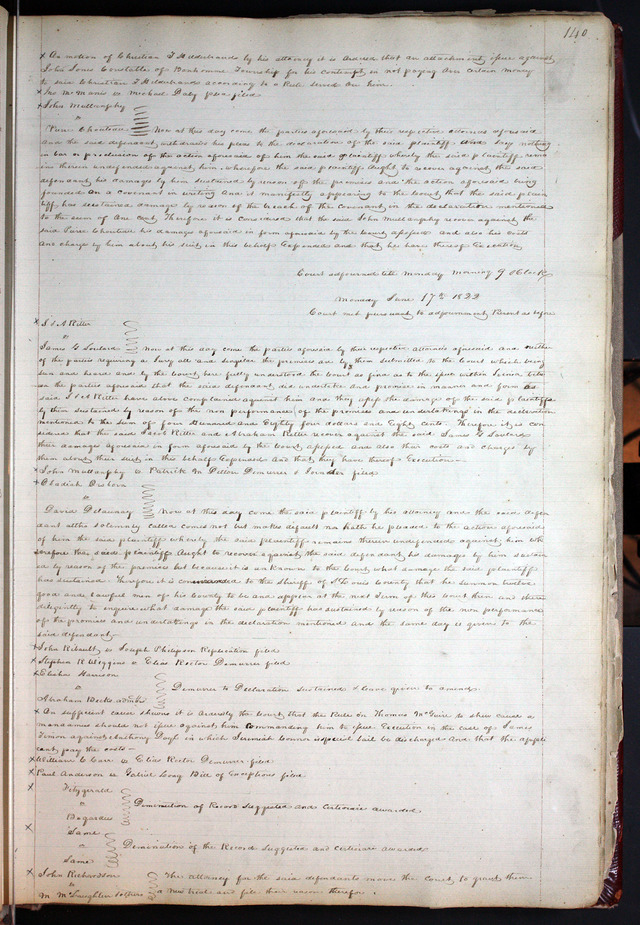 140
x On motion of Christian F Hildebrands by his attorney it is ordered that an attachment issue against
John Jones Constable of Bonhomme Township for his contempt in not paying over certain money
to said Christian F Hildebrands according to a Rule served on him.
x Jno McManis vs Michael Daly plea filed
x John Mullanphy
vs
Pierre Chouteau Now at this day come the parties aforesaid by their respective attornies aforesaid
And the said defendant withdraws his pleas to the declaration of the said plaintiff and says nothing
in bar or preclusion of the action aforesaid of him the said plaintiff whereby the said plaintiff remains
therein undefended against him. wherefore the said plaintiff ought to recover against the said
defendant his damages by him sustained by reason of the premises and the action aforesaid being
founded on a Covenant in writing and it manifestly appearing to the Court that the said plain
tiff has sustained damage by reason of the breach of the Covenant in the declaration mentioned
to the sum of one cent Therefore it is considered that the said John Mullanphy recover against the
said Pierre Chouteau his damages aforesaid in form aforesaid by the Court assessed and also his costs
and charges by him about his suit in this behalf Expended and that he have thereof Execution
Court adjourned till Monday morning 9 OClock
Monday June 17th 1822
Court met pursuant to adjournment Present as before
x J & A Ritter
vs
James G Soulard Now at this day come the parties aforesaid by their respective attornies aforesaid and neither
of the parties requiring a Jury all and singular the premises are by them submitted to the Court which being
seen and heard and by the Court here fully understood the Court do find as to the issue within Joined between
the parties aforesaid that the said defendant did undertake and promise in manner and form as
said J & A Ritter have above complained against him and they assess the damage of the said plaintiffs
by them sustained by reason of the non performance of the promises and undertakings in the declaration
mentioned to the Sum of four Hundred and Eighty four dollars and Eighty Cents. Therefore it is con
sidered that the said Jacob Ritter and Abraham Ritter recover against the said James G Soulard
their damages aforesaid in form aforesaid by the Court assessed and also their costs and charges by
them about their suit in this behalf Expended and that they have thereof Execution
x John Mullanphy vs Patrick M Dillon Demurrer & Joinder filed
x Obadiah Disborn
vs
David Delaunay Now at this day come the said plaintiff by his attorney and the said defen
dant altho solemnly called comes not but makes default nor hath he pleaded to the action aforesaid
of him the said plaintiff whereby the said plaintiff remains therein undefended against him wh
erefore the said plaintiff Ought to recover against the said defendant his damages by him sustain
ed by reason of the premises but because it is unknown to the Court what damage the said plaintiff
has sustained. Therefore it is commanded to the Sheriff of St Louis County that he summon twelve
good and lawful men of his County to be and appear at the next Term of this Court then and there
diligently to enquire what damage the said plaintiff has sustained by reason of the non performance
of the promises and undertakings in the declaration mentioned and the same day is given to the
said defendant
x John Ribault vs Joseph Philipson Replication filed
x Stephen R Wiggins vs Elias Rector Demurrer filed
x Elisha Harrison
vs Demurrer to Declaration Sustained & leave given to amend
Abraham Beck admr
x On sufficient cause shewn it is ordered by the Court that the Rule on Thomas McGuire to shew cause a
mandamus should not issue against him Commanding him to issue Execution in the case of James
Timon against Anthony Doyle in which Jeremiah Connor is special bail be discharged And that the appli
cant pay the costs
x William C Carr vs Elias Rector Demurrer filed
x Paul Anderson vs Gabriel Long Bill of Exceptions filed
x Fitzgerald
vs Diminution of Record Suggested and Certiorari awarded.
Bogardus
x Same
vs Diminution of the Record Suggested and Certiorari awarded
Same
x John Richardson The attorney for the said defendants move the Court to grant them
vs a new trial and file their reasons therefor.
M McLaughlin & others